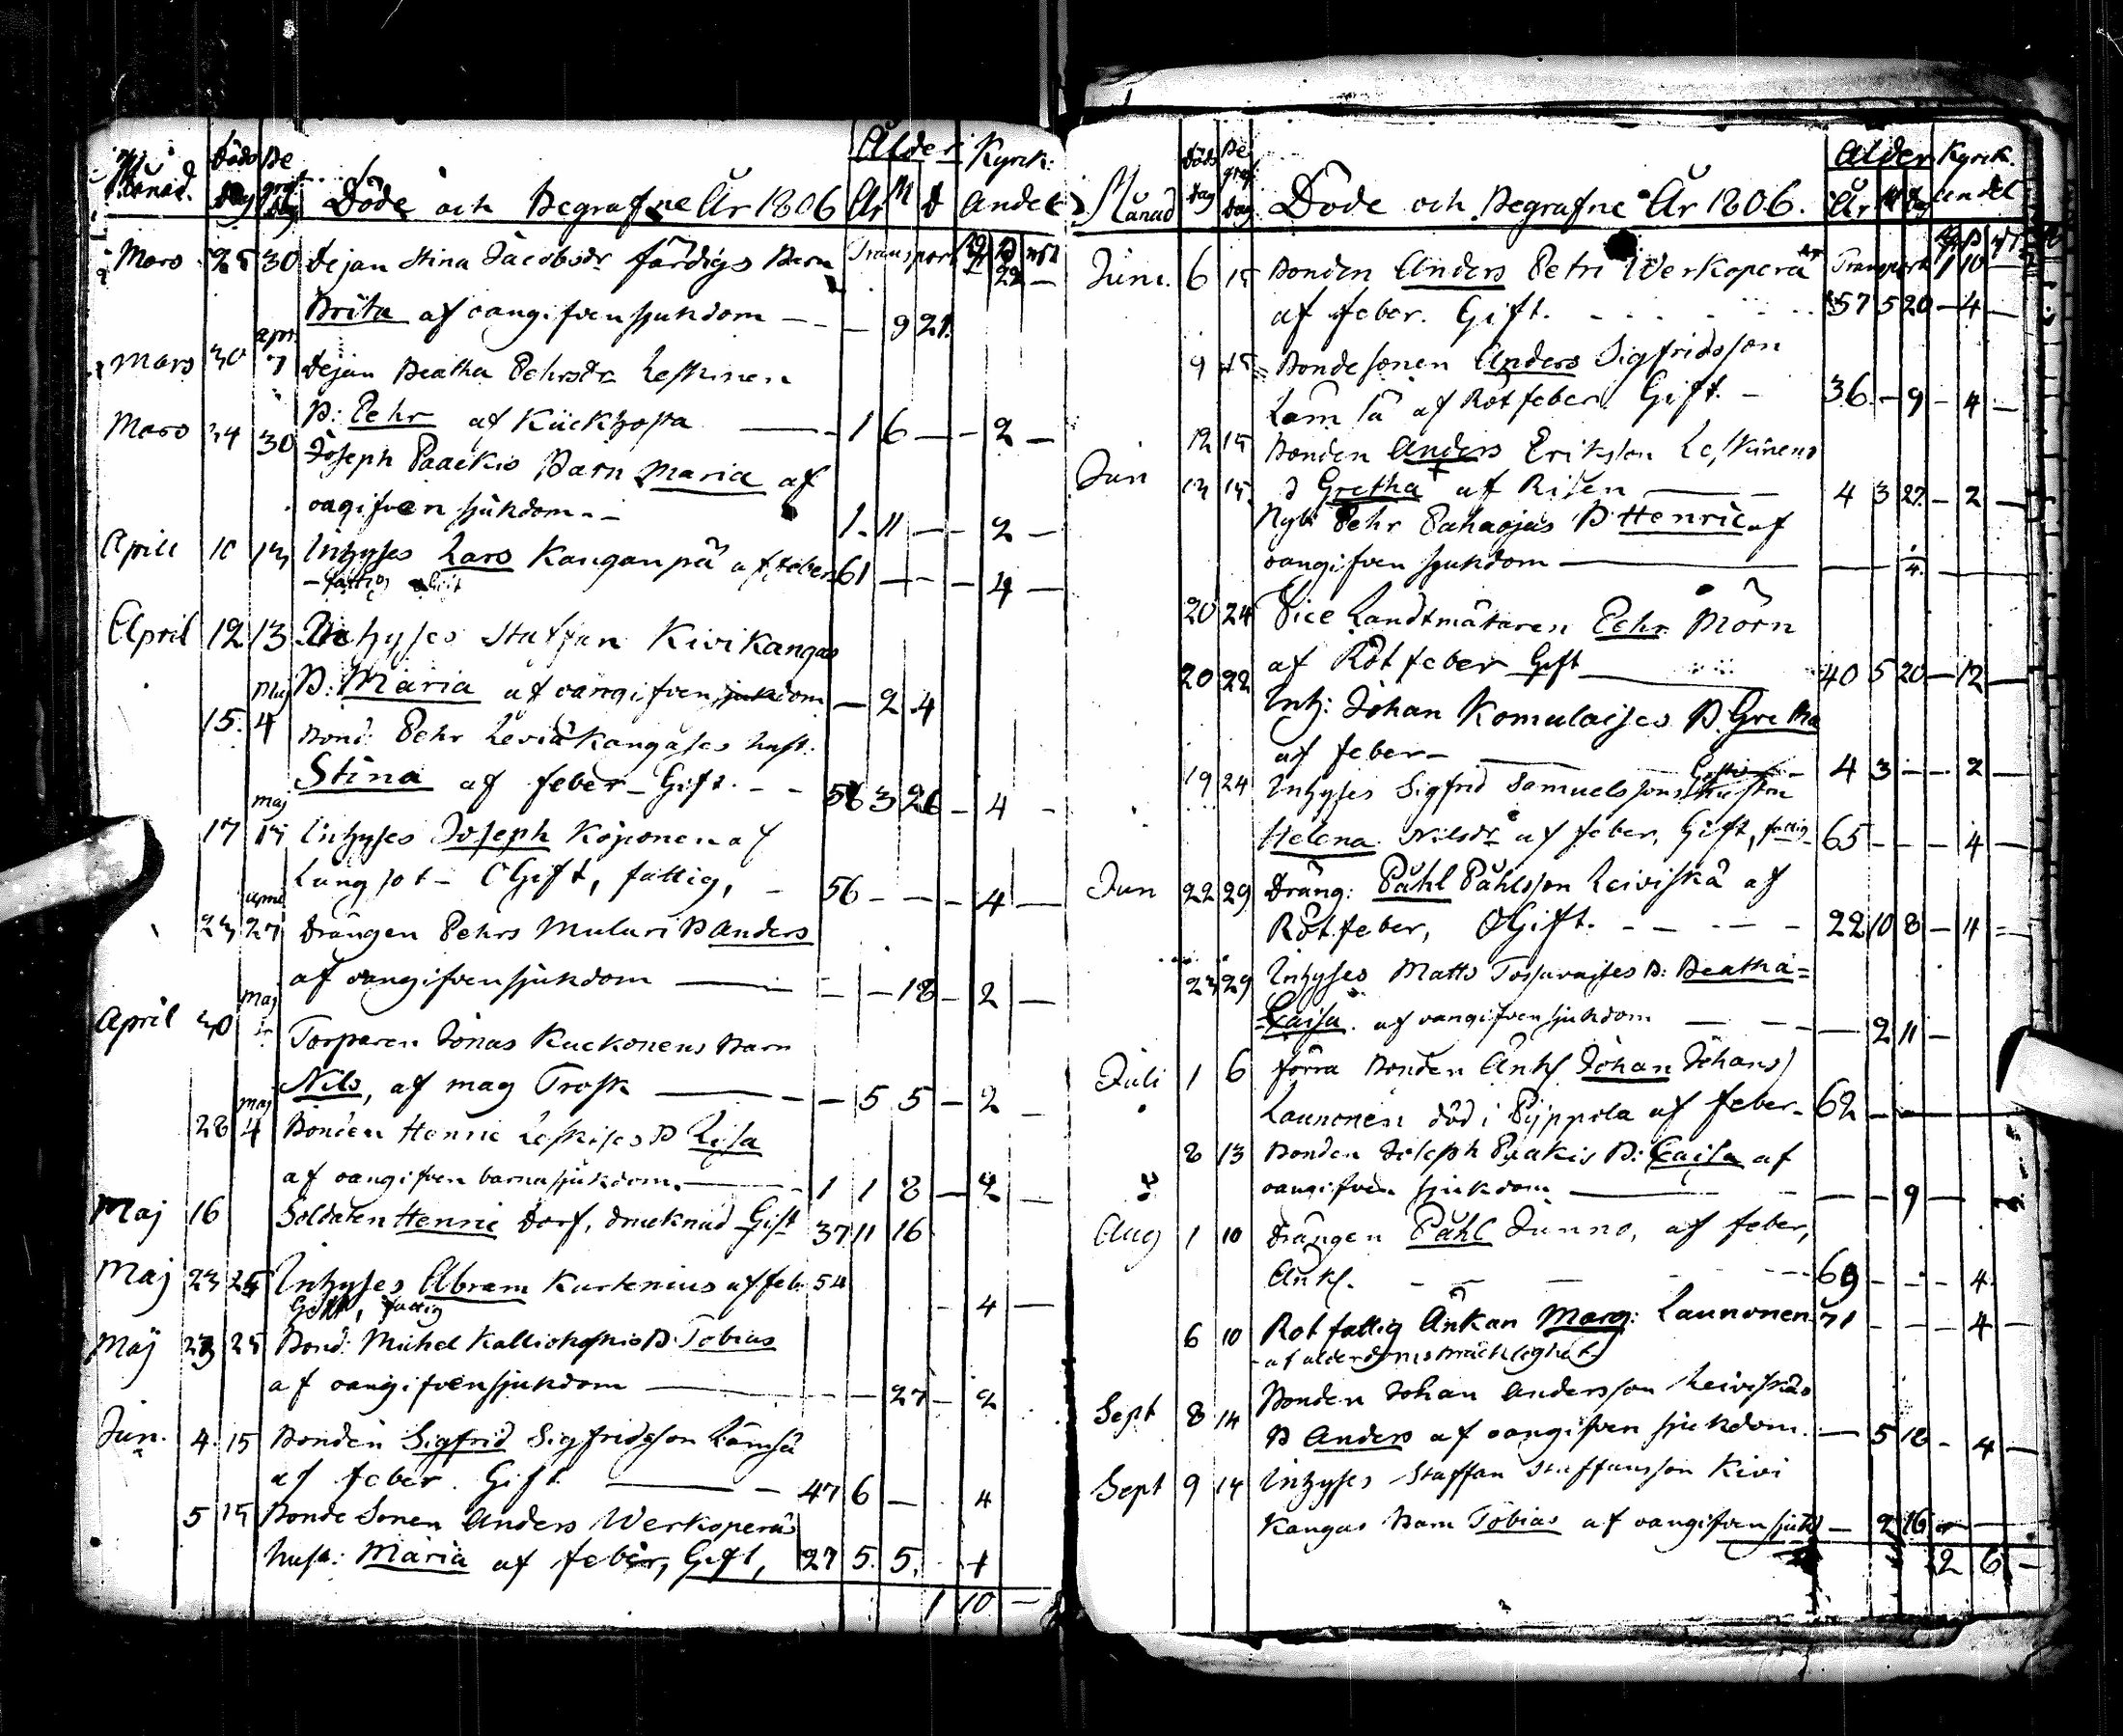 Månad. Döds dag Begraf. dag Döde och Begrafne År 1806 Ålder År M D Kyrk: andel
Mars 25 30 Pejan Stina Jacobsdr färdigs Barn Transport 22 —
Brita af oangifven sjukdom — — — 9 21.
Mars 30 apr. 7 Pejan Beatha Pehrsdr Leskinen
B: Pehr af Kückhosta — 1 6 — — 2 —
Mars 24 30 Joseph Paackis Barn Maria af
oagifven sjukdom. — 1. 11 — — 2 —
April 10 13 Inhyses Lars Kanganpä af feber 61 — — — 4 —
— fattig Gift
April 12 13 Inhyses Staffan Kivikangas
B: Maria af oangifven sjukdom — 2 4
15. Maj 4 Bond: Pehr Leviäkangases hust.
Stina af feber — Gift. — — 58 3 26 — 4 —
17 maj Inhyses Joseph Köponen af
Lungsot — OGift, fattig, — 56 — — — 4 —
23 april 27 Drängen Pehrs Muluri B Anders
af oangifven sjukdom — — — 18 — 2 —
April 30 Maj Torparen Jonas Kuckonens Barn
Nils, af mag Trosk — — — 5 5 — 2 —
28 maj 4 Bonden Henric Leskises B Lisa
af oangifven barnasjukdom. — 1 1 8 — 2 —
Maj 16 Soldaten Henric Dorf, druknad Gift 37 11 16
Maj 23 25 Inhyses Abram Kurtenius af feb. 54 — 4 —
Gift, fattig
Maj 23 25 Bond: Michel Kalliokoskis B. Tobias
af oangifven sjukdom — — — 27 — 2
Jun. 4. 15 Bonden Sigfrid Sigfridsson Lämsä
af feber. Gift — 47 6 — 4
5 15 Bonde Sonen Anders Werkoperäs
hust: Maria af feber, Gift, 27 5. 5. 4
1 10 —
Månad Döds dag Begraf. dag Döde och Begrafne År 1806. Ålder År M Dag Kyrk. andel
Juni. 6 15 Bonden Anders Petri Werkoperä Transport 1 10 —
af feber. Gift. 57 5 20 — 4 —
9 15 Bondesonen Anders Sigfridsson
Läm sä af Rötfeber. Gift. — 36. — 9 — 4 —
Jun 12 15 Bonden Anders Eriksson Leskinens
d Gretha af Risen — 4 3 27. — 2 —
13 15. Nyb: Pehr Pahaojas B Henric af
oangifven sjukdom — — 4. —
20 24 Vice Landtmätaren Pehr Mörn
af Rötfeber Gift — 40 5 20 — 12 —
20 22 Inh: Johan Komulaises B. Gretha
af feber — 4 3 — — 2 —
19 24 Inhyses Sigfrid Samuelssons Hustru
Helena Nilsdr af feber, Gift, fattig 65 — — — 4 —
Jun 22 29 Dräng: Påhl Påhlsson Leiviskä af
Rötfeber, OGift. — — 22 10 8 — 4 —
23 29 Inhyses Matts Tossavaises B: Beatha=
=Caisa. af oangifven sjukdom — — — 2 11 —
Juli 1 6 förra Bonden Änkl Johan Johans
Launonen död i Pyppola af feber. 62 — —
8 13 Bonden Joseph Paakis B: Caisa af
oangifven sjukdom — — — 9 —
Aug 1 10 Drängen Påhl Junno, af feber,
Änkl. — — — 69 — — — 4.
6 10 Rotfattig Änkan Marg: Launonen 71 — — — 4 —
— af alderdoms bräcklighet
Sept 8 14 Bonden Johan Andersson Leiviskäs
B Anders af oangifven sjukdom. — 5 18 — 4 —
Sept 9 14 Inhyses Staffan Staffansson Kivi
Kangas Barn Tobias af oangifven sjukd — 2 16 —
2 6 —